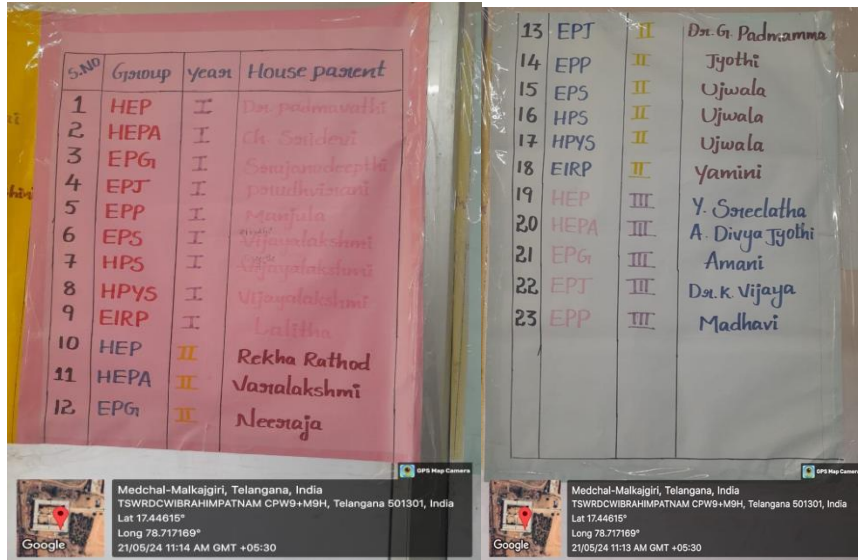 S.NO Group year House parent
1 HEP I Dr padmavathi
2 HEPA I Ch. Sridevi
3 EPG I
4 EPJ I
5 EPP I Manjula
6 EPS I Vijayalakshmi
7 HPS I Vijayalakshmi
8 HPYS I Vijayalakshmi
9 EIRP I Lalitha
10 HEP II Rekha Rathod
11 HEPA II Varalakshmi
12 EPG II Neeraja
GPS Map Camera
Medchal-Malkajgiri, Telangana, India
TSWRDCWIBRAHIMPATNAM CPW9+M9H, Telangana 501301, India
Lat 17.44615°
Long 78.717169°
21/05/24 11:14 AM GMT +05:30
Google
13 EPJ II Dr. G. Padmamma
14 EPP II Jyothi
15 EPS II Ujwala
16 HPS II Ujwala
17 HPYS II Ujwala
18 EIRP II Yamini
19 HEP III Y. Sreelatha
20 HEPA III A. Divya Jyothi
21 EPG III Amani
22 EPJ III Dr. K Vijaya
23 EPP III Madhavi
GPS Map Camera
Medchal-Malkajgiri, Telangana, India
TSWRDCWIBRAHIMPATNAM CPW9+M9H, Telangana 501301, India
Lat 17.44615°
Long 78.717169°
21/05/24 11:13 AM GMT +05:30
Google